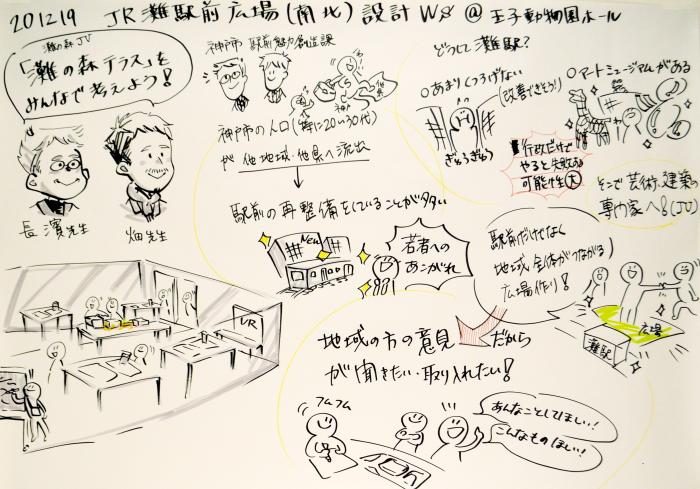 201219 JR灘駅前広場(南北)設計WS @王子動物園ホール
灘の森JV
「灘の森テラス」を
みんなで考えよう!
長濱先生
畑先生
神戸市 駅前魅力創造課
神戸市の人口(特に20〜30代)
が他地域、他県へ流出
駅前の再整備をしていることが多い
New
若者への
あこがれ
どうして灘駅?
○あまりくつろげない
(改善できそう!)
ぎゅうぎゅう
行政だけで
やると失敗する
可能性大
○アートミュージアムがある
そこで芸術、建築の
専門家へ!(JV)
駅前だけでなく
地域全体がつながる
広場作り!
広場
灘駅
VR
だから
地域の方の意見
が聞きたい・取り入れたい!
フムフム
あんなことしてほしい!
こんなものほしい!